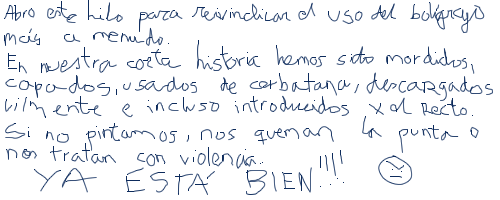 Abro este hilo para reivindicar el uso del bolígrafo
más a menudo.
En nuestra corta historia hemos sido mordidos,
capados, usados de cerbatana, descargados
vilmente e incluso introducidos x el recto.
Si no pintamos, nos queman la punta o
nos tratan con violencia.
YA ESTÁ BIEN!!!!